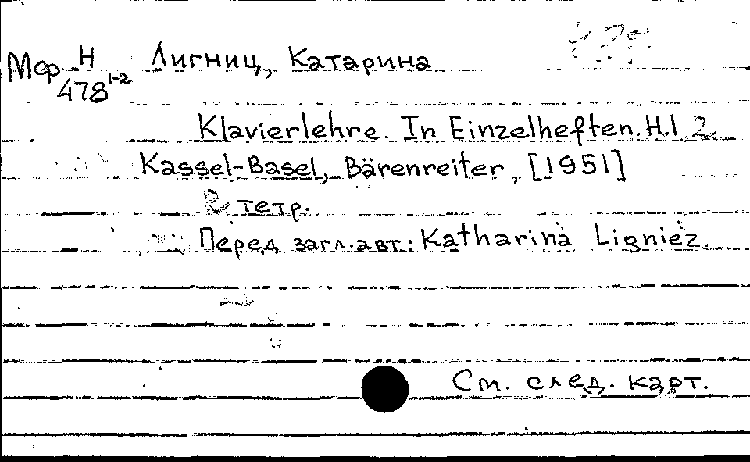 Мф Н Лигниц, Катарина
478 1-2
Klavierlehre. In Einzelheften. H.1 2
Kassel-Basel, Bärenreiter, [1951]
2 тетр.
Перед загл. авт.: Katharina Ligniez.
См. след. карт.